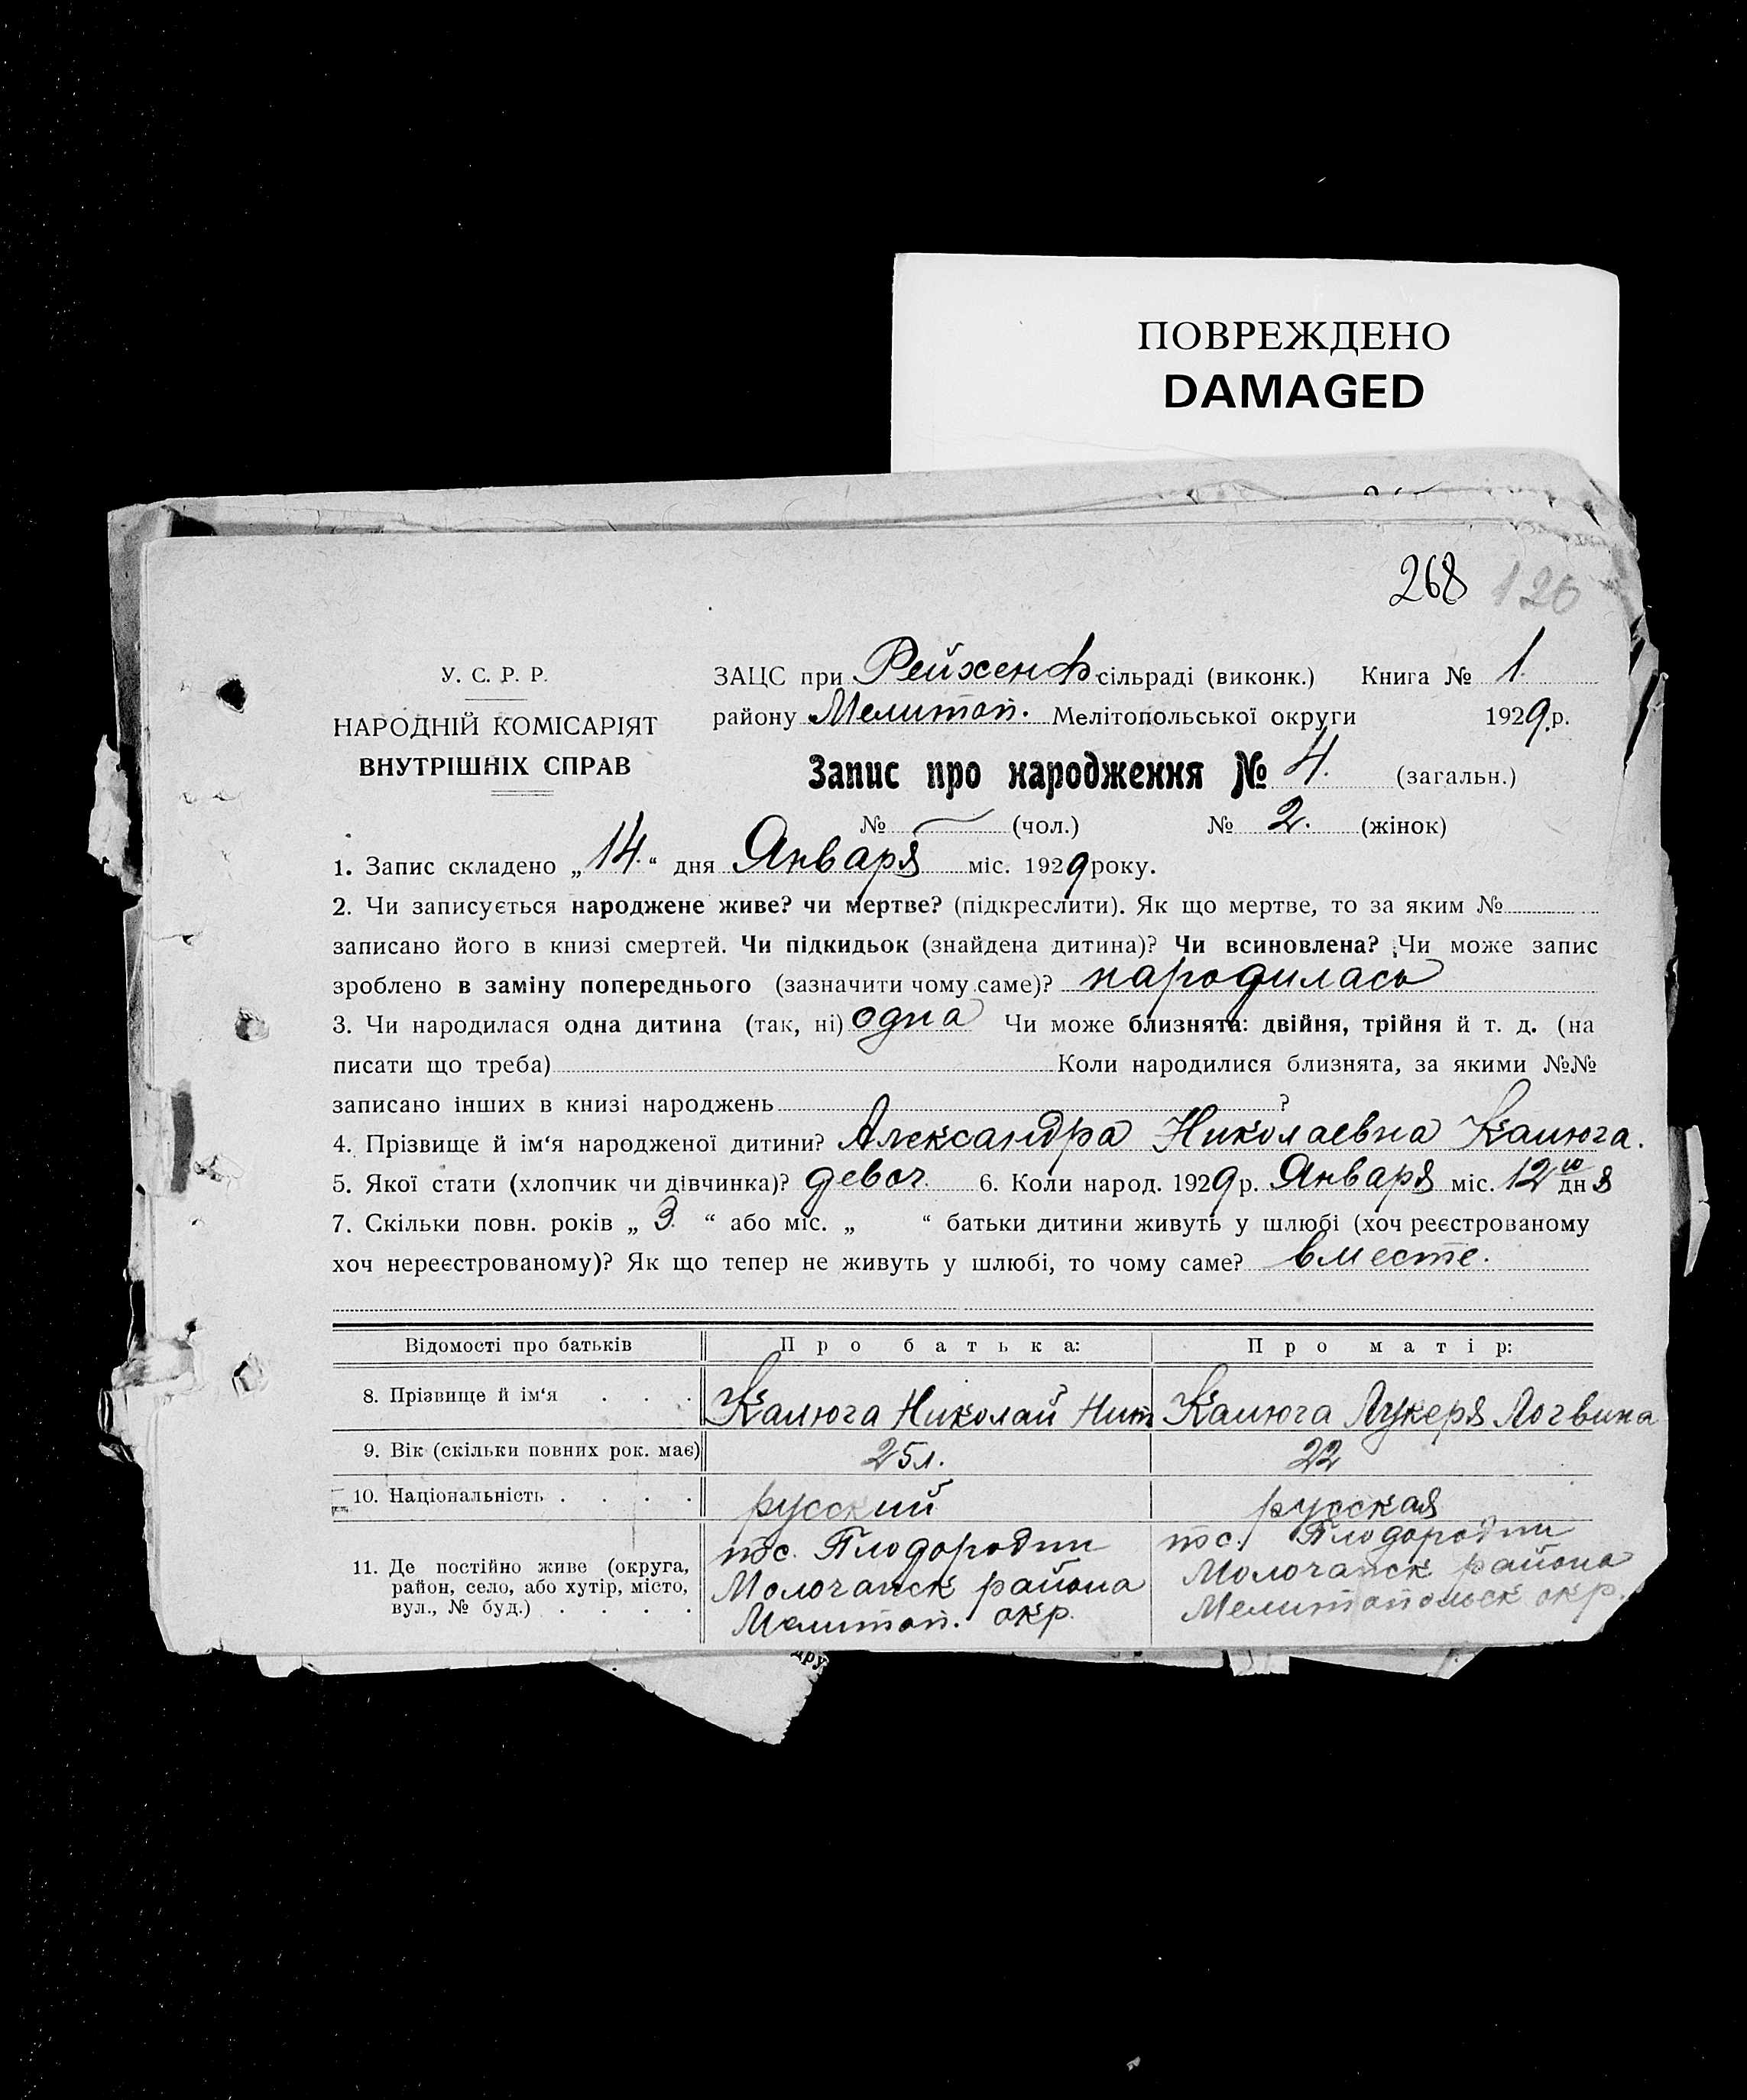 ПОВРЕЖДЕНО
DAMAGED
268 120
У. С. Р. Р.
НАРОДНІЙ КОМІСАРІЯТ
ВНУТРІШНІХ СПРАВ
ЗАЦС при Рейхенф. сільраді (виконк.) Книга № 1.
району Мелитоп. Мелітопольської округи 1929 р.
Запис про народження № 4. (загальн.)
№ — (чол.) № 2. (жінок)
1. Запис складено „14.“ дня Января міс. 1929 року.
2. Чи записується народжене живе? чи мертве? (підкреслити). Як що мертве, то за яким №
записано його в книзі смертей. Чи підкидьок (знайдена дитина)? Чи всиновлена? Чи може запис
зроблено в заміну попереднього (зазначити чому саме)? народилась
3. Чи народилася одна дитина (так, ні) одна Чи може близнята: двійня, трійня й т. д. (на
писати що треба) Коли народилися близнята, за якими №№
записано інших в книзі народжень ?
4. Прізвище й ім‘я народженої дитини? Александра Николаевна Калюга.
5. Якої стати (хлопчик чи дівчинка)? девоч. 6. Коли народ. 1929 р. Января міс. 12го дня
7. Скільки повн. років „ 3. “ або міс. „ “ батьки дитини живуть у шлюбі (хоч реєстрованому
хоч нереєстрованому)? Як що тепер не живуть у шлюбі, то чому саме? вместе.
Відомості про батьків Про батька: Про матір:
8. Прізвище й ім‘я . . . Калюга Николай Ник Калюга Лукеря Логвина
9. Вік (скільки повних рок. має) 25 л. 22
10. Національність . . . . русский русская
11. Де постійно живе (округа, район, село, або хутір, місто, вул., № буд.) . . . .
пос. Плодородни
Молочанск района
Мелитоп. окр.
пос. Плодородни
Молочанск района
Мелитопольск окр.
дру